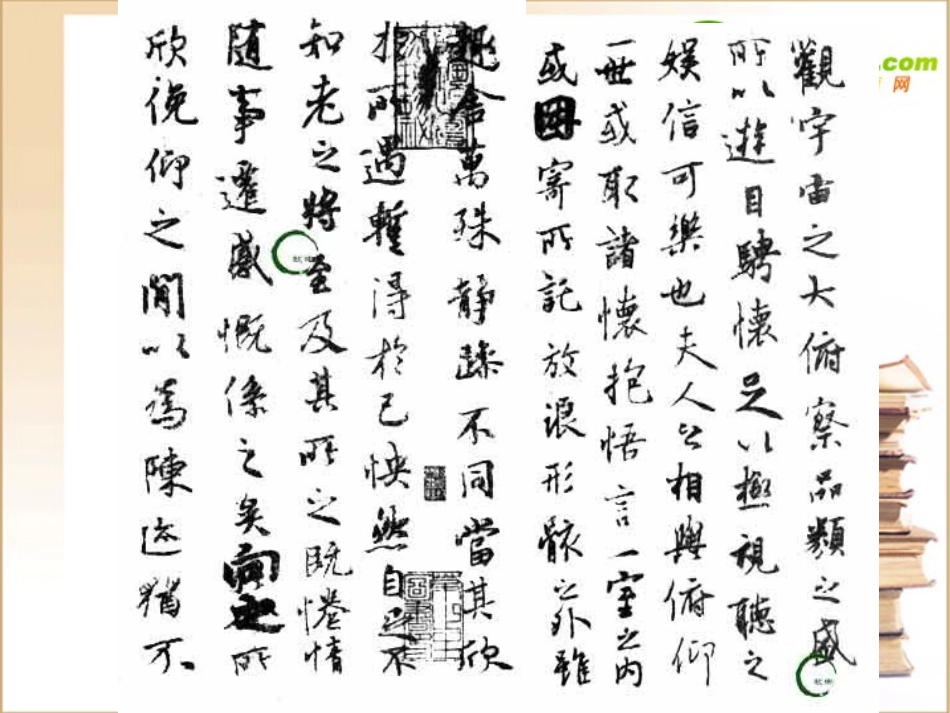 觀宇宙之大俯察品類之盛
所以遊目騁懷足以極視聽之
娛信可樂也夫人之相與俯仰
一世或取諸懷抱悟言一室之內
或因寄所託放浪形骸之外雖
趣舍萬殊靜躁不同當其欣
於所遇蹔得於己怏然自足不
知老之將至及其所之既惓情
隨事遷感慨係之矣向之所
欣俛仰之閒以為陳迹猶不
.com
网